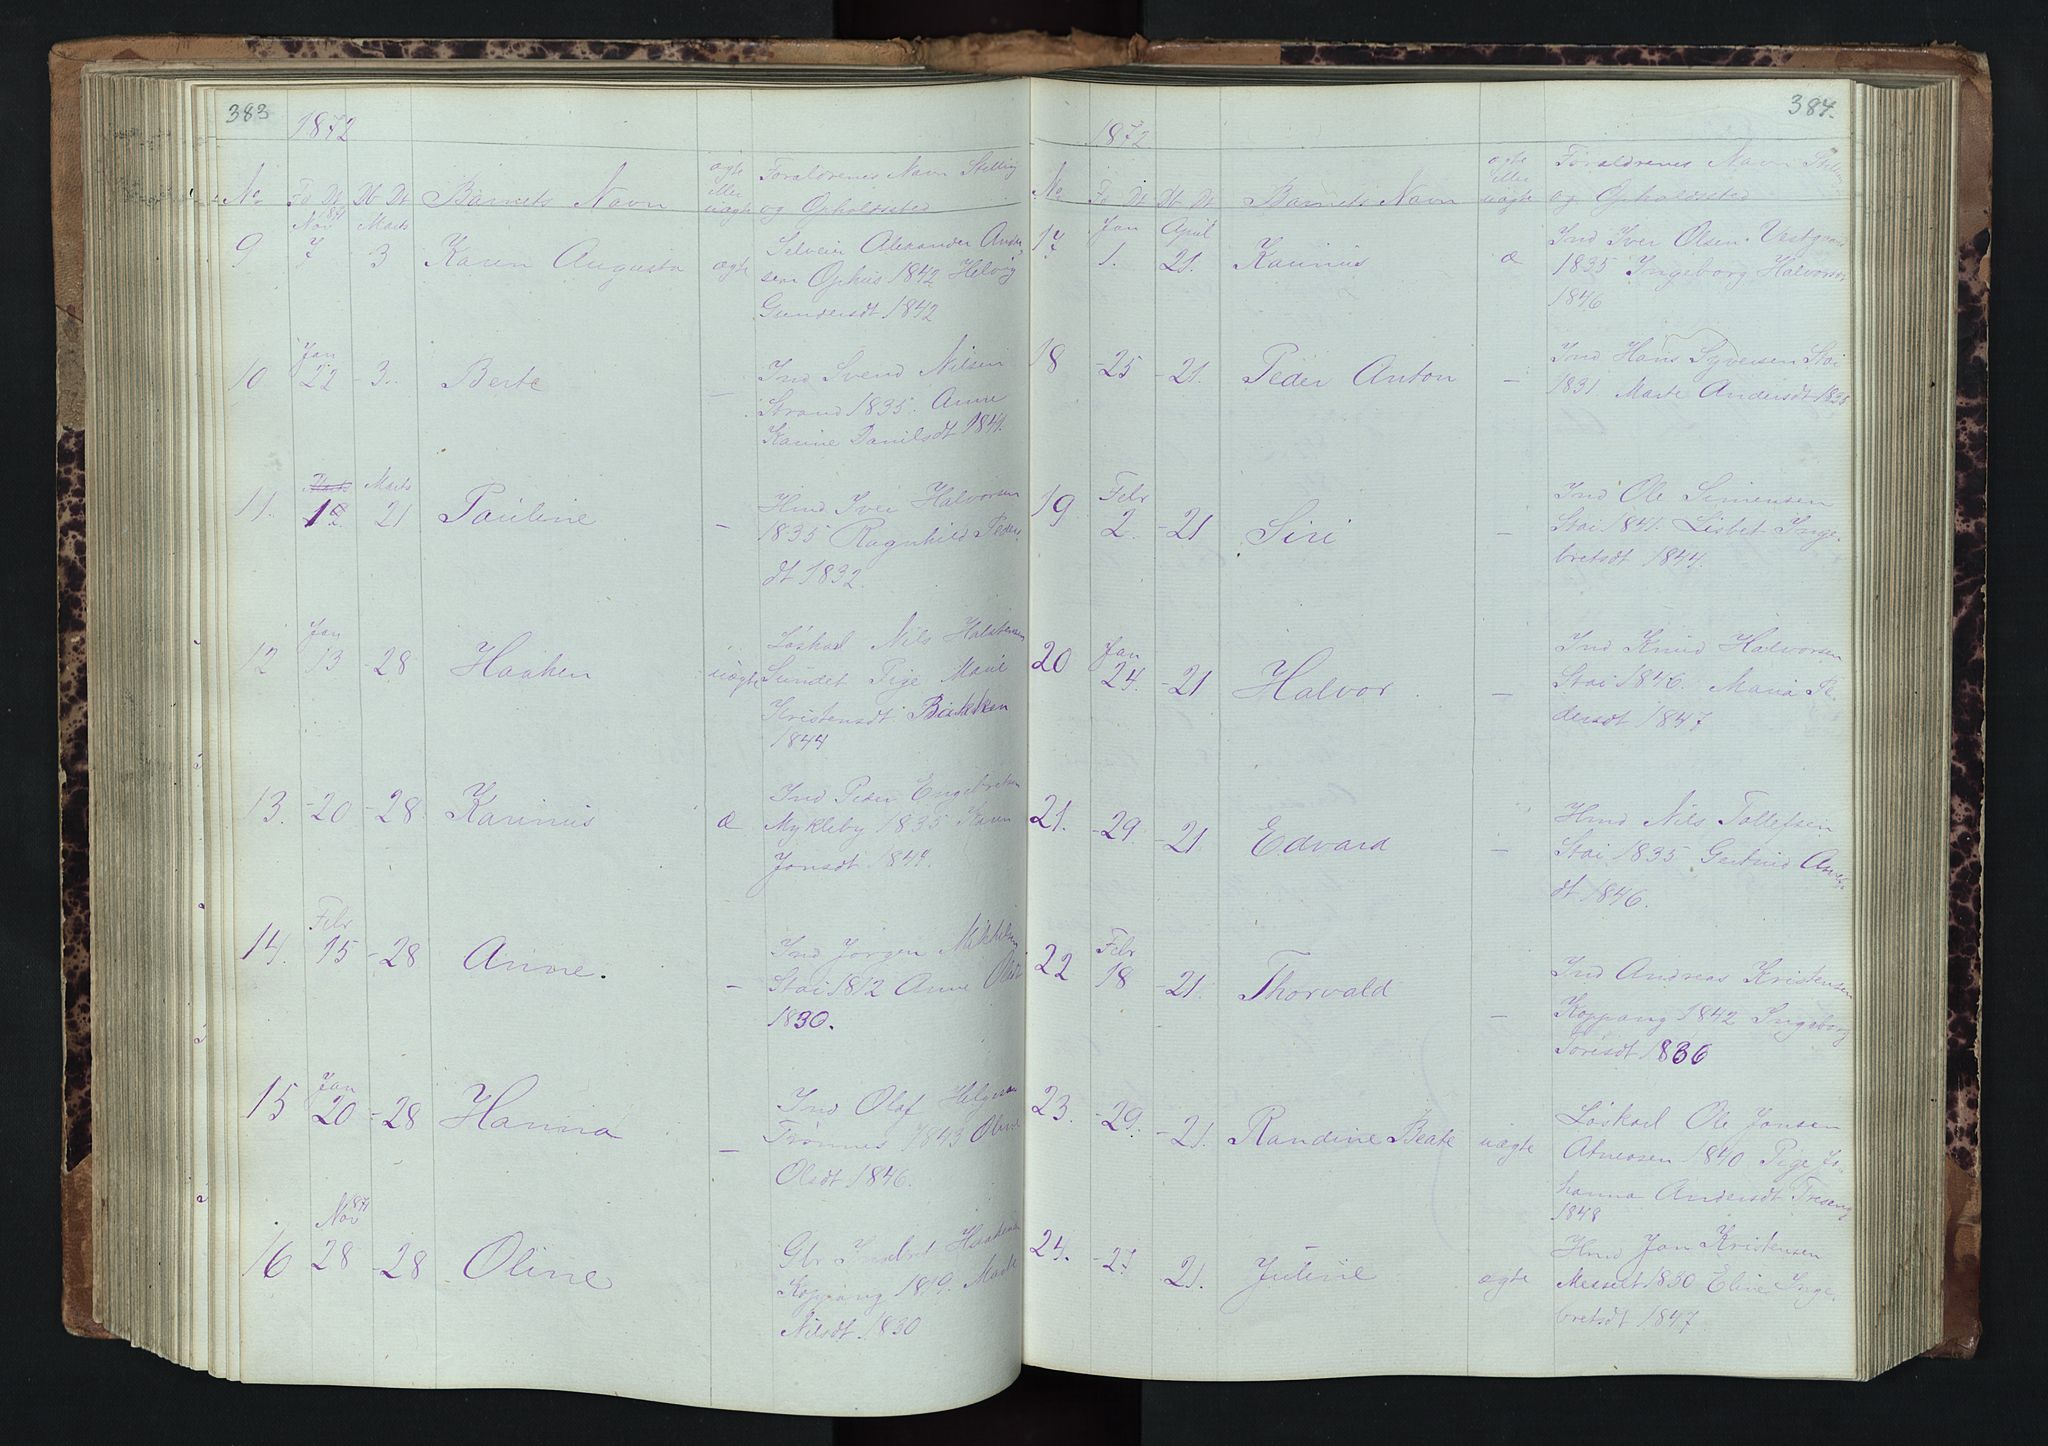 383
1872
No Fd Dt Db Dt Barnets Navn ægte eller uægte Forældrenes Navn Stilling
og Opholdssted
Nov 1871 Marts
9 7 3 Karen Augusta ægte Selveier Alexander Ander
sen Ophus 1842 Helvig
Gundersdt 1842
Jan
10 22 - 3. Berte - Ind Svend Nilsen
Strand 1835. Anne
Karine Danilsdt 1841.
Marts
11. 21 Pauline - Hmd Iver Halvorsen
1835 Ragnhild Peders
dt 1832.
Jan
12 13 - 28 Haaken uægte Løskarl Nils Halstensen
Sundet Pige Marie
Kristensdt Bakken
1844
13. - 20 - 28. Karinus æ Ind Peder Engebretsen
Mykleby 1835 Karen
Jonsdt 1849.
Febr
14. 15 - 28 Anne. - Ind Jørgen Mikkelsen
Stai 1812 Anne
1830.
Jan
15 20 - 28 Hanna - Ind Olaf Helgesen
Trønnes 1843 Oline
Olsdt 1846.
Nov 1871
16 28 - 28 Oline Gbr Haakensen
Koppang 1819. Marte
Nilsdt. 1830
384.
1872
No Fd Dt Db Dt Barnets Navn ægte eller uægte Forældrenes Navn Stilling
og Opholdssted
Jan April
17 1. 21. Karinus æ Ind Iver Olsen Vestgaard
1835 Ingeborg Halvorsen
1846
18 - 25 - 21. Peder Anton - Ind Hans Syversen Stai
1831 Marte Andersdt 1838
Febr
19. 2. - 21 Siri - Ind Ole Simensen
Stai 1841. Lisbet Inge-
bretsdt 1844.
Jan
20 24. - 21 Halvor - Ind Knud Halvorsen
Stai 1846. Maria Pe-
dersdt 1847
21. - 29. - 21 Edvard - Hmd Nils Tollefsen
Stai 1835 Gertrud
dt 1846.
Febr
22 18 - 21. Thorvald - Ind Andreas Kristensen
Koppang 1842 Ingeborg
Torisdt 1836
23. - 29. - 21. Randine Beate uægte Løskarl Ole Jonsen
Atneosen 1840 Pige Jo-
hanna Andersdt
1848
24. - 27. - 21. Juline ægte Hmd Jon Kristensen
Messelt 1830 Eline Inge-
bretsdt 1847.